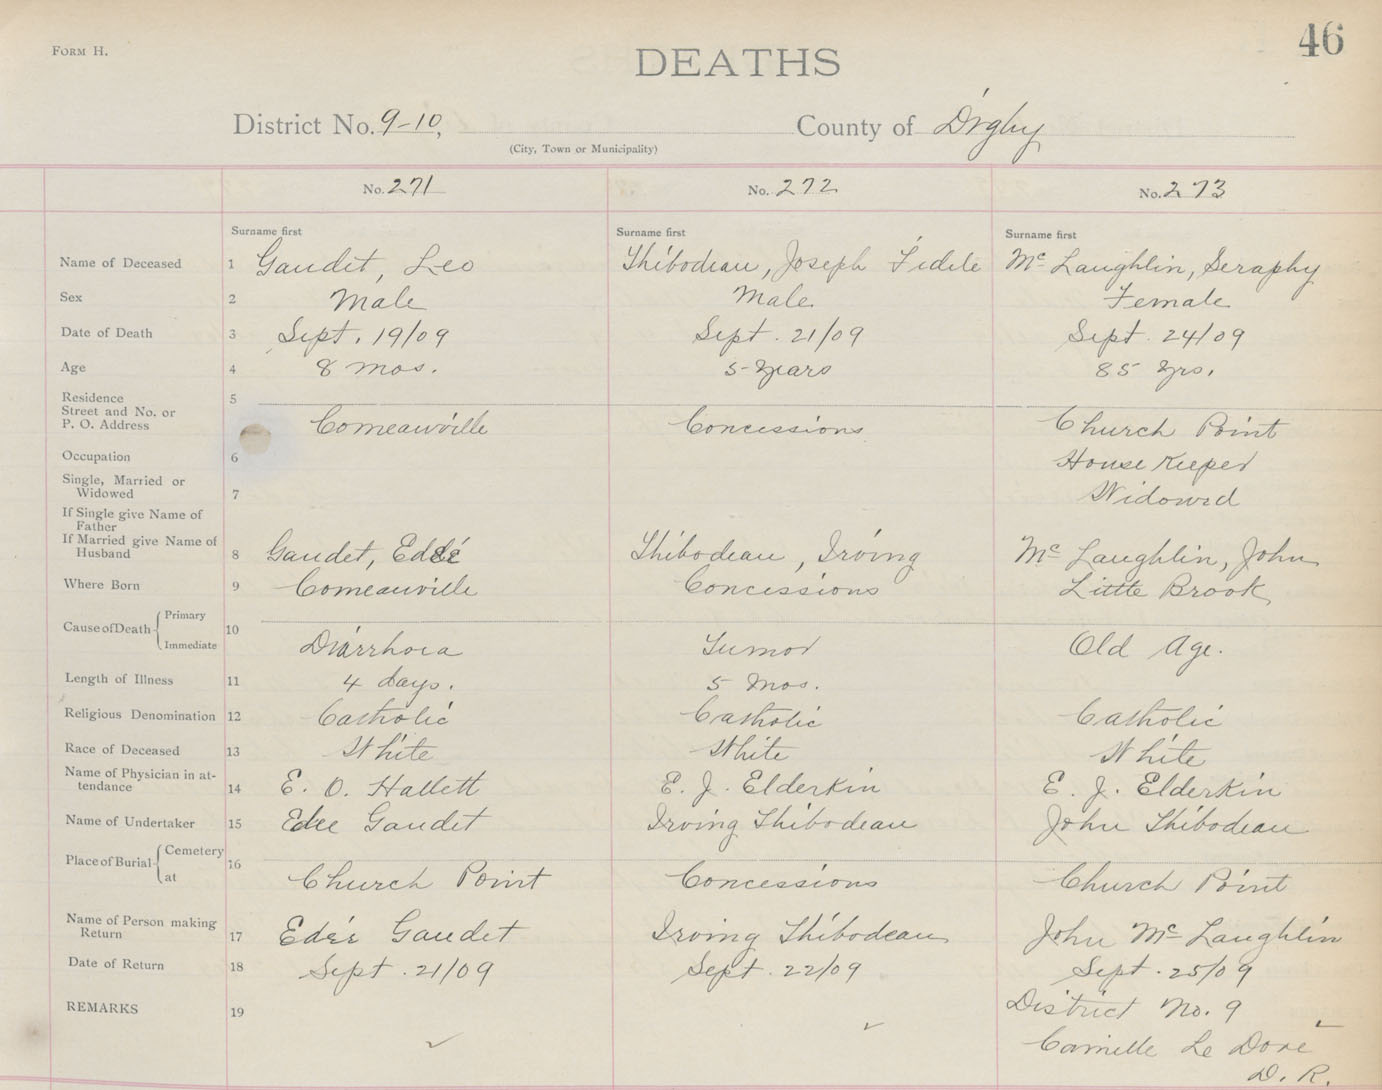 FORM H.
DEATHS
46
District No. 9-10, County of Digby
(City, Town or Municipality)
No. 271 No. 272 No. 273
Surname first Surname first Surname first
Name of Deceased 1 Gaudet, Leo Thibodeau, Joseph Fidele Mc Laughlin, Seraphy
Sex 2 Male Male Female
Date of Death 3 Sept. 19/09 Sept. 21/09 Sept. 24/09
Age 4 8 mos. 5 years 85 yrs.
Residence 5
Street and No. or
P. O. Address Comeauville Concessions Church Point
Occupation 6 House Keeper
Single, Married or
Widowed 7 Widowed
If Single give Name of
Father
If Married give Name of
Husband 8 Gaudet, Thibodeau, Irving Mc Laughlin, John
Where Born 9 Comeauville Concessions Little Brook
Cause of Death Primary 10
Immediate Diarrhoea Tumor Old Age.
Length of Illness 11 4 days. 5 mos.
Religious Denomination 12 Catholic Catholic Catholic
Race of Deceased 13 White White White
Name of Physician in at-
tendance 14 E. O. Hallett E. J. Elderkin E. J. Elderkin
Name of Undertaker 15 Gaudet Irving Thibodeau John Thibodeau
Place of Burial Cemetery 16
at Church Point Concessions Church Point
Name of Person making
Return 17 Gaudet Irving Thibodeau John Mc Laughlin
Date of Return 18 Sept. 21/09 Sept. 22/09 Sept. 25/09
REMARKS 19 District No. 9
Camille Le Dore
D. R.